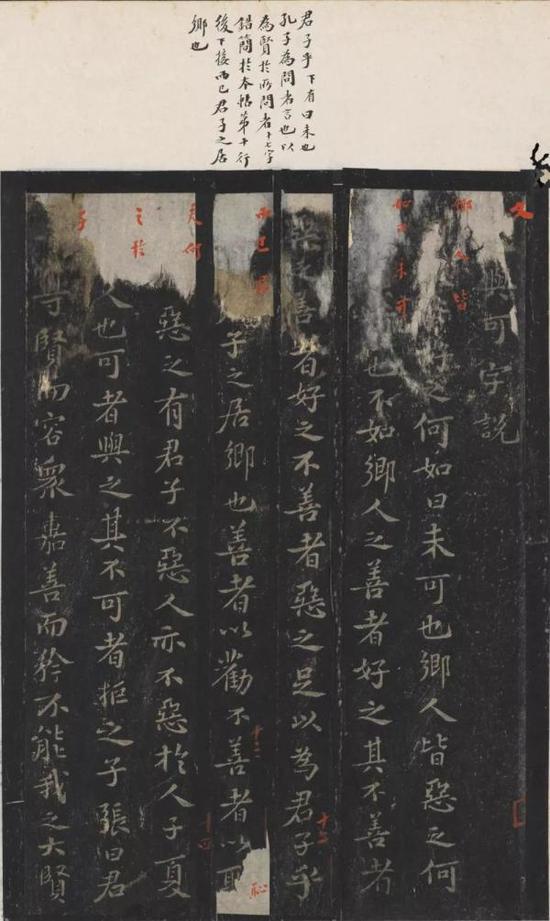 君子乎下有曰未也
孔子為問者言也以
為賢於所問者十七字
錯簡於本帖第十行
後下接而已君子之居
鄉也
文與可字說
鄉人皆好之何如曰未可也鄉人皆惡之何
如曰未可也不如鄉人之善者好之其不善者
之善者好之不善者惡之足以為君子乎
十二
而已君子之居鄉也善者以勸不善者以恥
十三
夫何惡之有君子不惡人亦不惡於人子夏
十四
之於人也可者與之其不可者拒之子張曰君
子尊賢而容眾嘉善而矜不能我之大賢